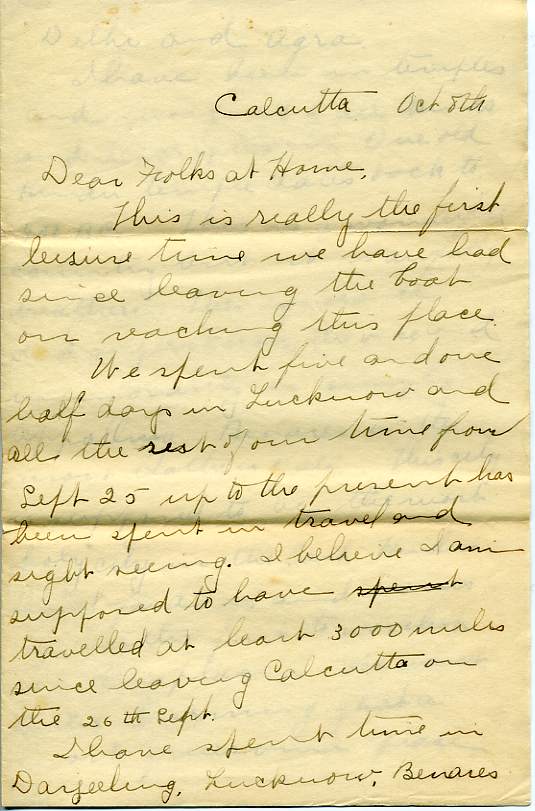 Calcutta Oct 8th
Dear Folks at Home,
This is really the first
leisure time we have had
since leaving the boat
on reaching this place.
We spent five and one
half days in Lucknow and
all the rest of our time from
Sept 25 up to the present has
been spent in travel and
sight seeing. I believe I am
supposed to have spent
travelled at least 3000 miles
since leaving Calcutta on
the 26th Sept.
I have spent time in
Darjeeling, Lucknow, Benares